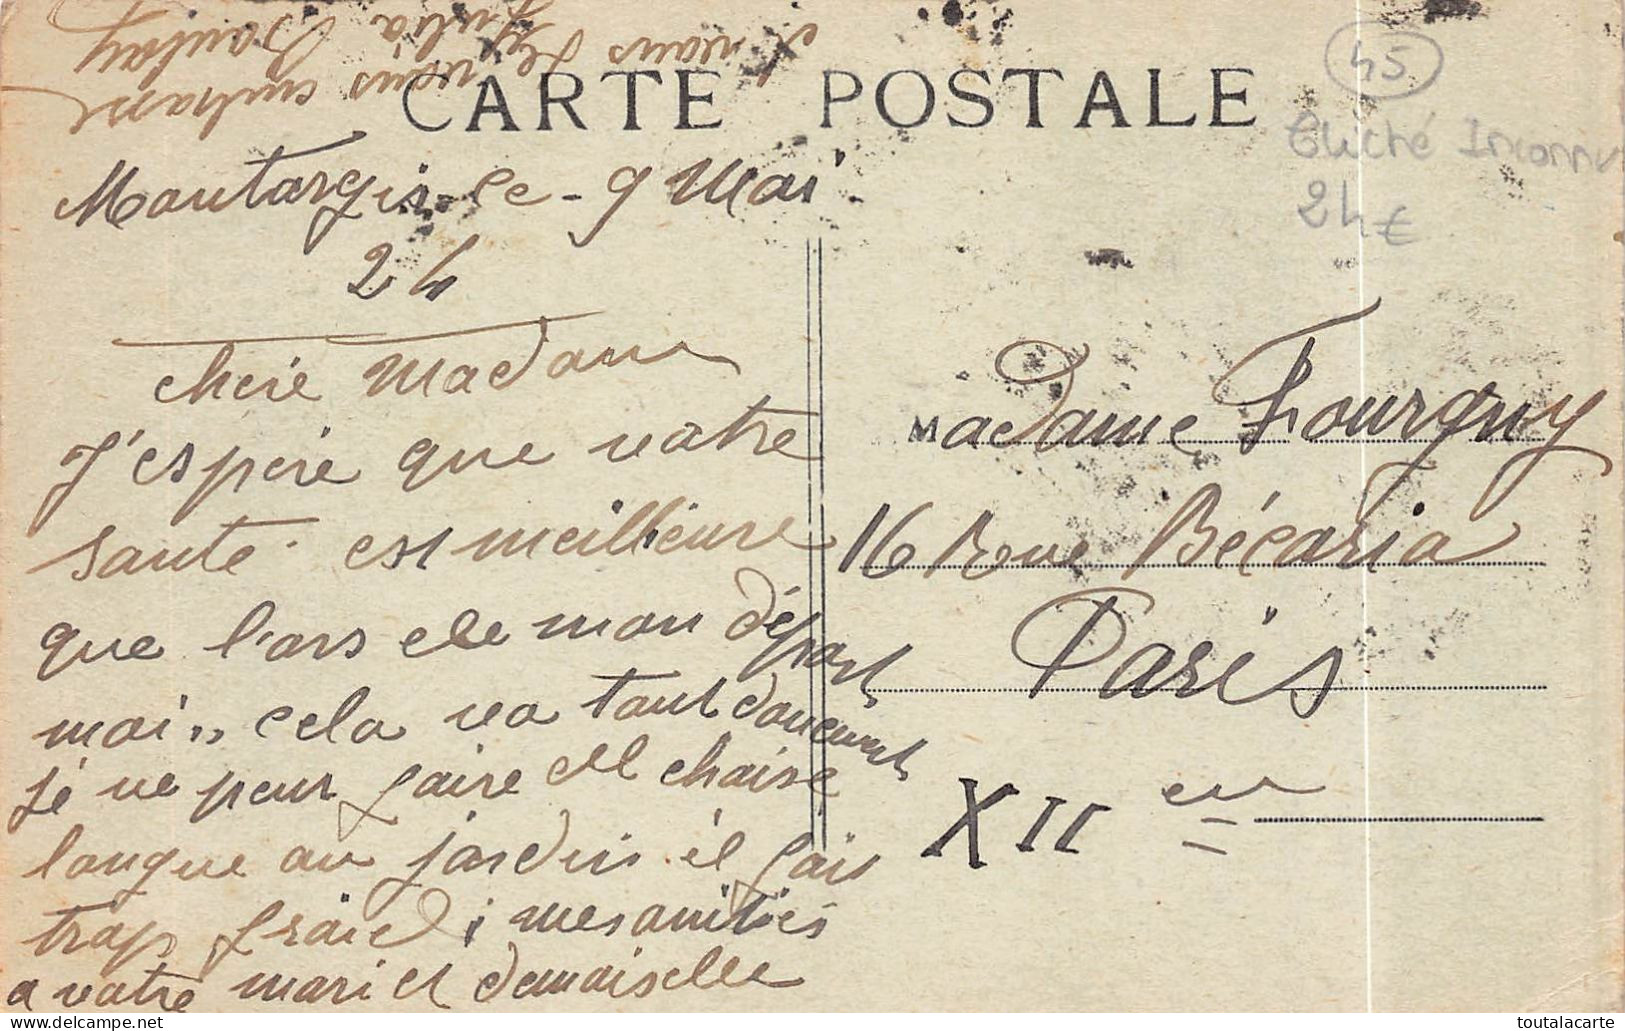 CARTE POSTALE
45
Cliché Inconnu
24€
Montargis le 9 Mai
24
chère Madame
J'espère que votre
santé est meilleure
que l'ors de mon départ
moi,, cela va tout doucement
je ne peux faire de chaise
longue au jardin il fait
trop froid ; mes amitiés
a votre mari et demoiselle
et vous
vous embrasse
Julia
Madame Fourgny
16 Rue Bécaria
Paris
XII em
toutalacarte